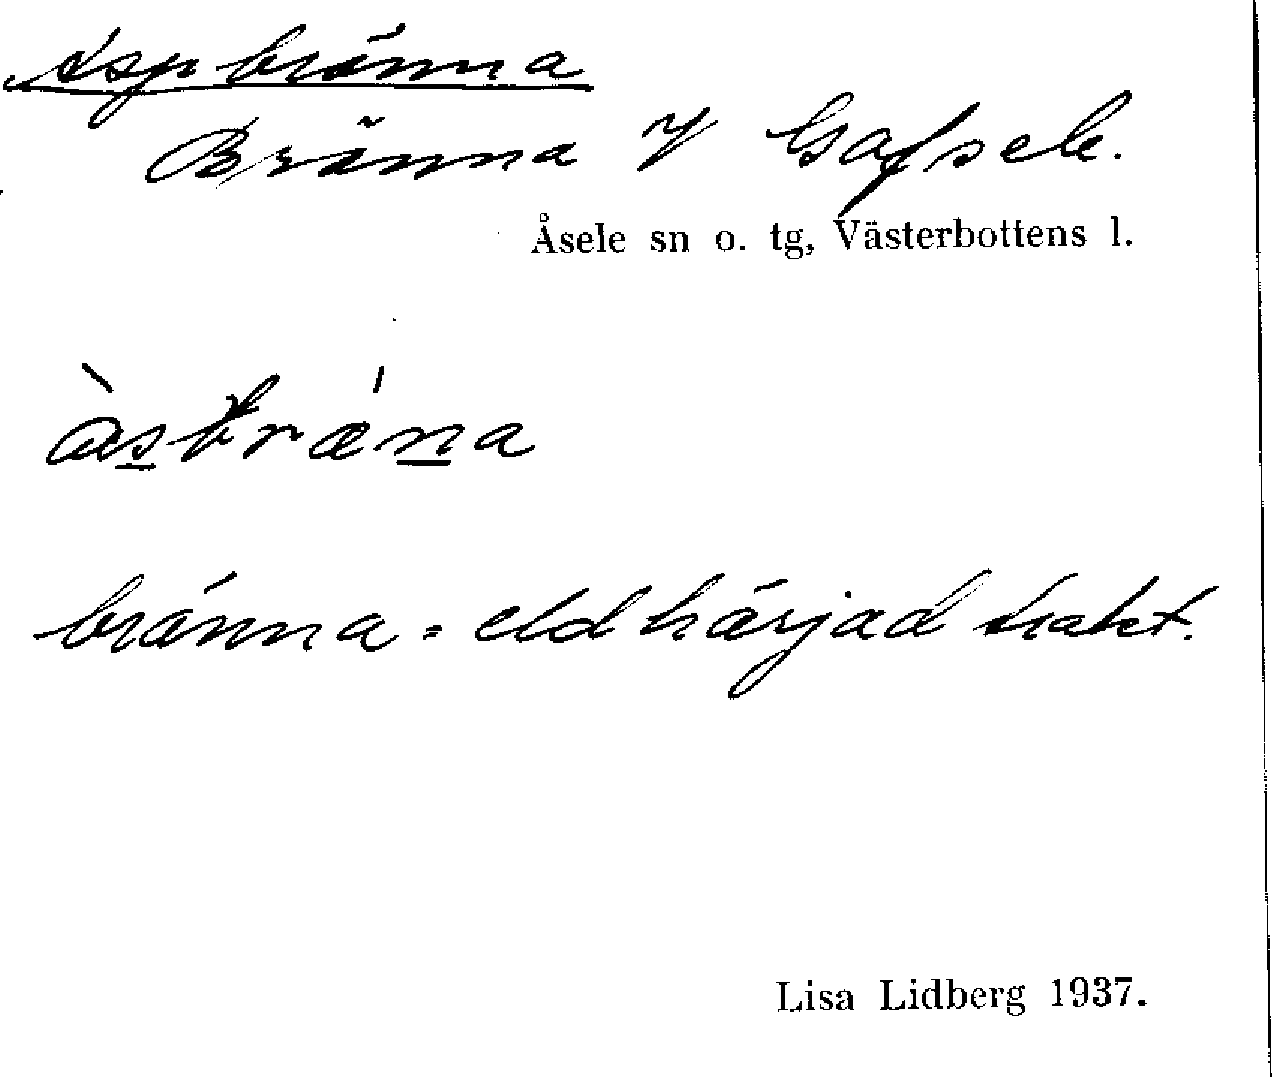 Aspbränna
Bränna i Gafsele.
Åsele sn o. tg, Västerbottens l.
bränna = eldhärjad trakt.
Lisa Lidberg 1937.